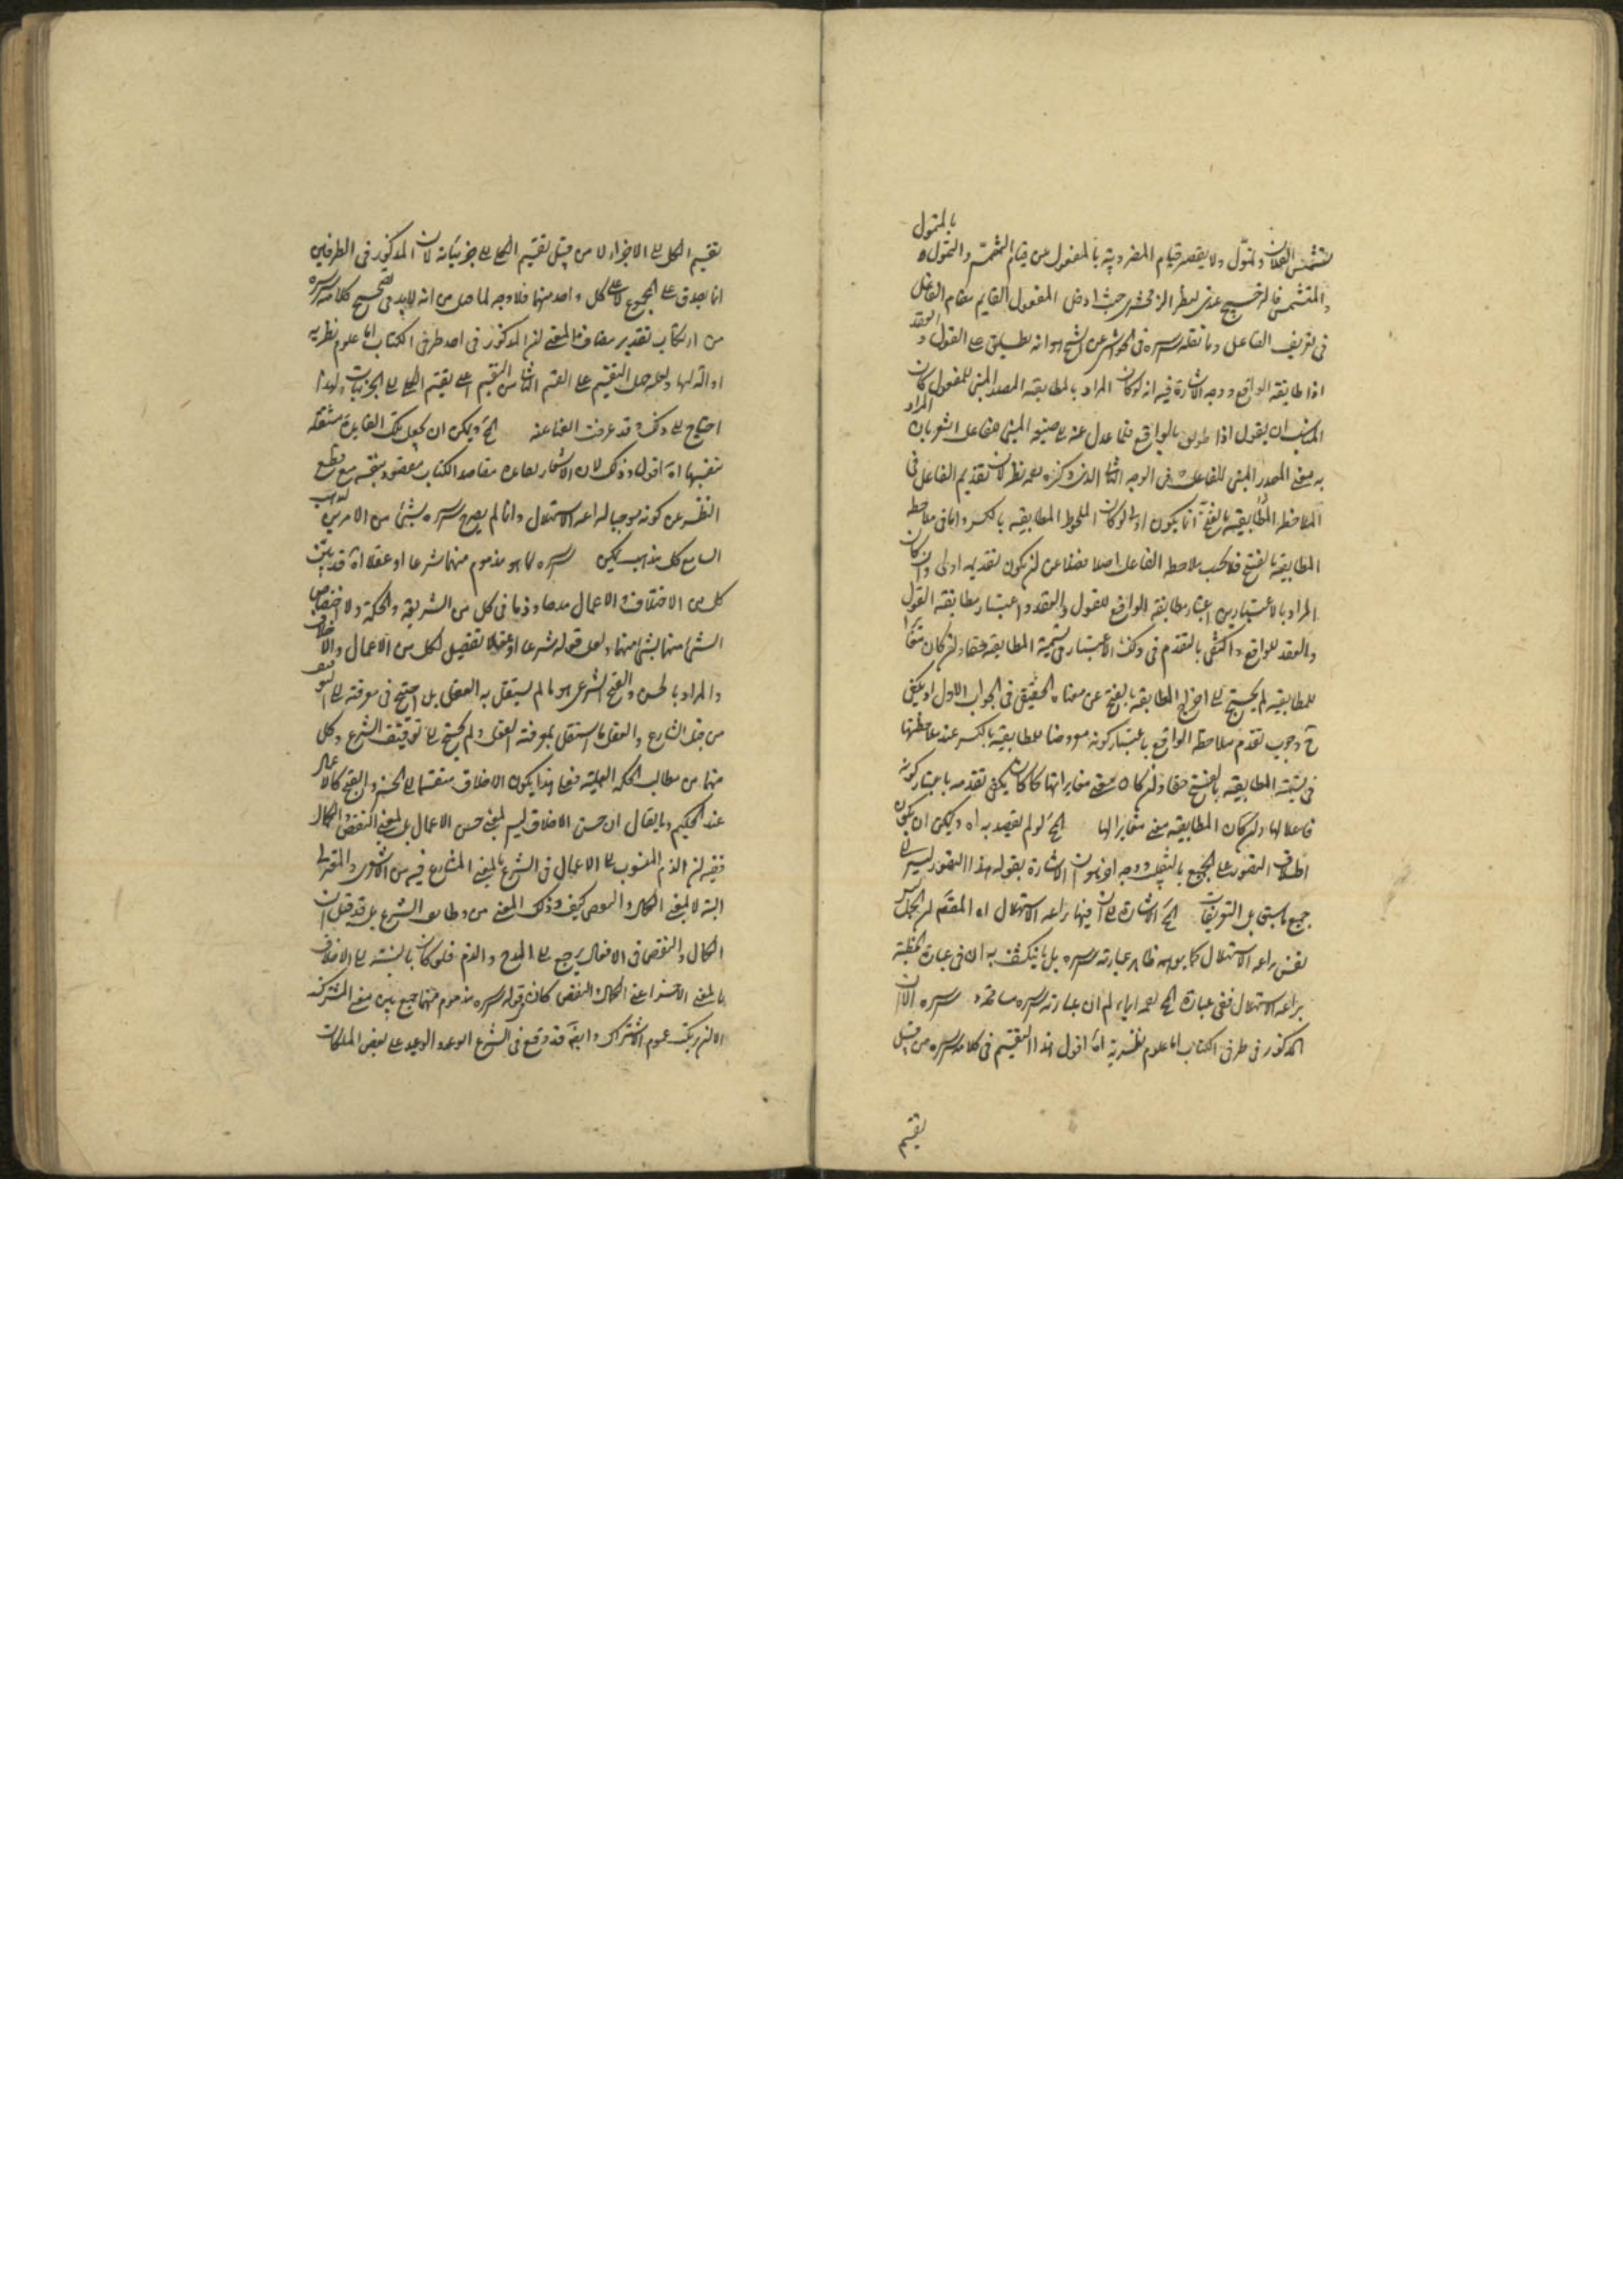 بالمتمول
تشمس الفلان وتمول ولا يقصد قيام المضروبية بالمفعول من قيام التشمس والتمول
والمتشمس فالترجيح عندى لنظر الزمخشرى حيث ادخل المفعول القايم مقام الفاعل
فى تعريف الفاعل وما نقله سره فى الحواشى عن الشيخ هو انه يطلق على القول والعقد
اذا طابقه الواقع ووجه الاشارة فيه انه لو كان المراد بالمطابقة المصدر المبنى للمفعول كان
المناسب ان يقول اذا طوبق بالواقع فلما عدل عنه الى صيغة المبنى للفاعل اشعر بان المراد
به معنى المصدر المبنى للفاعل فى الوجه الثانى الذى ذكره نظر لان تقديم الفاعل فى
الملاحظة المطابقية بالفتح انما يكون اولى لو كان الملحوظ المطابقية بالكسر واما فى ملاحظة
المطابقية بالفتح فلا يجب ملاحظة الفاعل اصلا فضلا عن ان يكون تقديمه اولى وان كان
المراد بالاعتبارين اعتبار مطابقة الواقع للقول والعقد واعتبار مطابقة القول
والعقد للواقع واكتفى بالتقدم فى ذلك الاعتبار فى تسمية المطابقية حقا وان كان مغايرا
للمطابقية لم يحتج الى اخراج المطابقية بالفتح عن معناه الحقيقى فى الجواب الاول او يكفى
ح وجوب تقدم ملاحظة الواقع باعتبار كونه معروضا للمطابقية بالكسر عند ملاحظتها
فى تسمية المطابقية بالفتح حقا وان كان معنى مغايرا لها كما كان يكفى تقدمه باعتبار كونه
فاعلا لها وان كان المطابقية معنى مغايرا لها الخ لو لم يقصد به اه ويمكن ان يكون
اطلاق التصور على الجميع بالتغليب ووجه اخر هو ان الاشارة بقوله هذا التصور ليس الى
جميع ما سبق بل التعريفات الخ الاشارة الى ان فيها براعة الاستهلال اه المقصود ان الجمل ليس
نفس براعة الاستهلال كما يوهمه ظاهر عبارته سره بل ما ينكشف به ان فى عبارة الخطبة
براعة الاستهلال ففى عبارة الخ نعمه ايماء لم ان عبارته سره مسامحة سره الان
المذكور فى طرفى الكتاب اما علوم نظرية اه اقول هذا التقسيم فى كلامه سره من قبيل
تقسيم
تقسيم الكل الى الاجزاء لا من قبيل تقسيم الكلى الى جزئياته لان المذكور فى الطرفين
انما يصدق على المجموع لا على كل واحد منهما فلا وجه لما قيل من انه لابد فى تصحيح كلامه سره
من ارتكاب تقدير مضاف المعنى ان المذكور فى احد طرفى الكتاب اما علوم نظرية
او آلة لها ولعله حمل التقسيم على القسم الثانى من التقسيم اعنى تقسيم الكلى الى الجزئيات ولهذا
احتاج الى ذلك وقد عرفت الغنا عنه الخ ويمكن ان يجعل تلك الفايدة مستقلة
بنفسها اه اقول وذلك لان الاشعار بقاعدة مقاصد الكتاب مقصود بنفسه مع قطع
النظر عن كونه موجبا لبراعة الاستهلال وانما لم يصرح سره بشئ من الامرين لذهاب
السامع كل مذهب يمكن سره لما هو مذموم منهما شرعا او عقلا اه قد بين
كل من الاخلاق والاعمال مدحا وذما فى كل من الشريعة والحكمة ولا اختصاص
لشئ منهما بشئ منهما ولعل قوله شرعا او عقلا تفصيل لكل من الاعمال والاخلاق
والمراد بالحسن والقبح الشرعى هو ما لم يستقل به العقل بل احتيج فى معرفته الى التوقيف
من قبل الشارع والعقلى ما استقل بمعرفته العقل ولم يحتج الى توقيف الشرع وكل
منهما من مطالب الحكمة العملية فعلى هذا يكون الاخلاق منقسما الى الحسن والقبح كالاعمال
عند الحكيم وما يقال ان حسن الاخلاق ليس بمعنى حسن الاعمال بل بمعنى النقص والكمال
ففيه ان الذم المنسوب الى الاعمال فى الشرع بالمعنى المتنازع فيه بين الاشعرى والمعتزلى
البتة لا بمعنى الكمال والنقص كيف وذلك المعنى من وظايف الشرع بل قد قيل ان
الكمال والنقص فى الافعال يرجع الى المدح والذم فلو كان بالنسبة الى الاخلاق
بالمعنى الاخر اعنى الكمال والنقص كان قوله سره مذموم منهما جمع بين معنى المشترك
الا ان يرتكب عموم الاشتراك وايضا قد وقع فى الشرع الوعد والوعيد على بعض الملكات